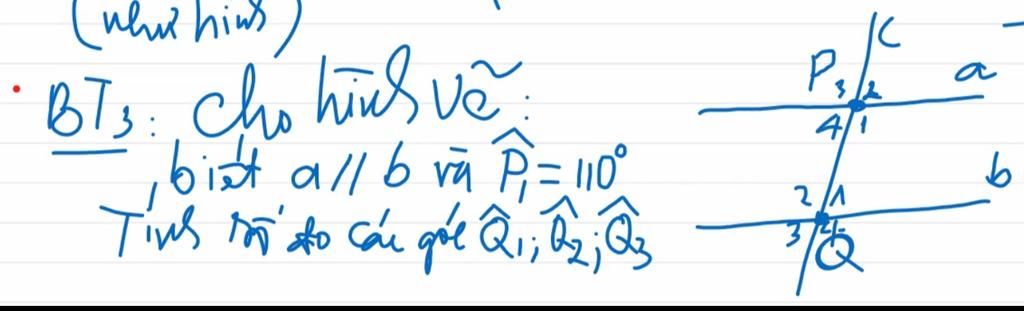 (như hình)
BT3: Cho hình vẽ:
, biết a // b và P̂1 = 110°
Tính số đo các góc Q̂1; Q̂2; Q̂3
c
P 3 2 a
4 1
b
2 1
3 4
Q